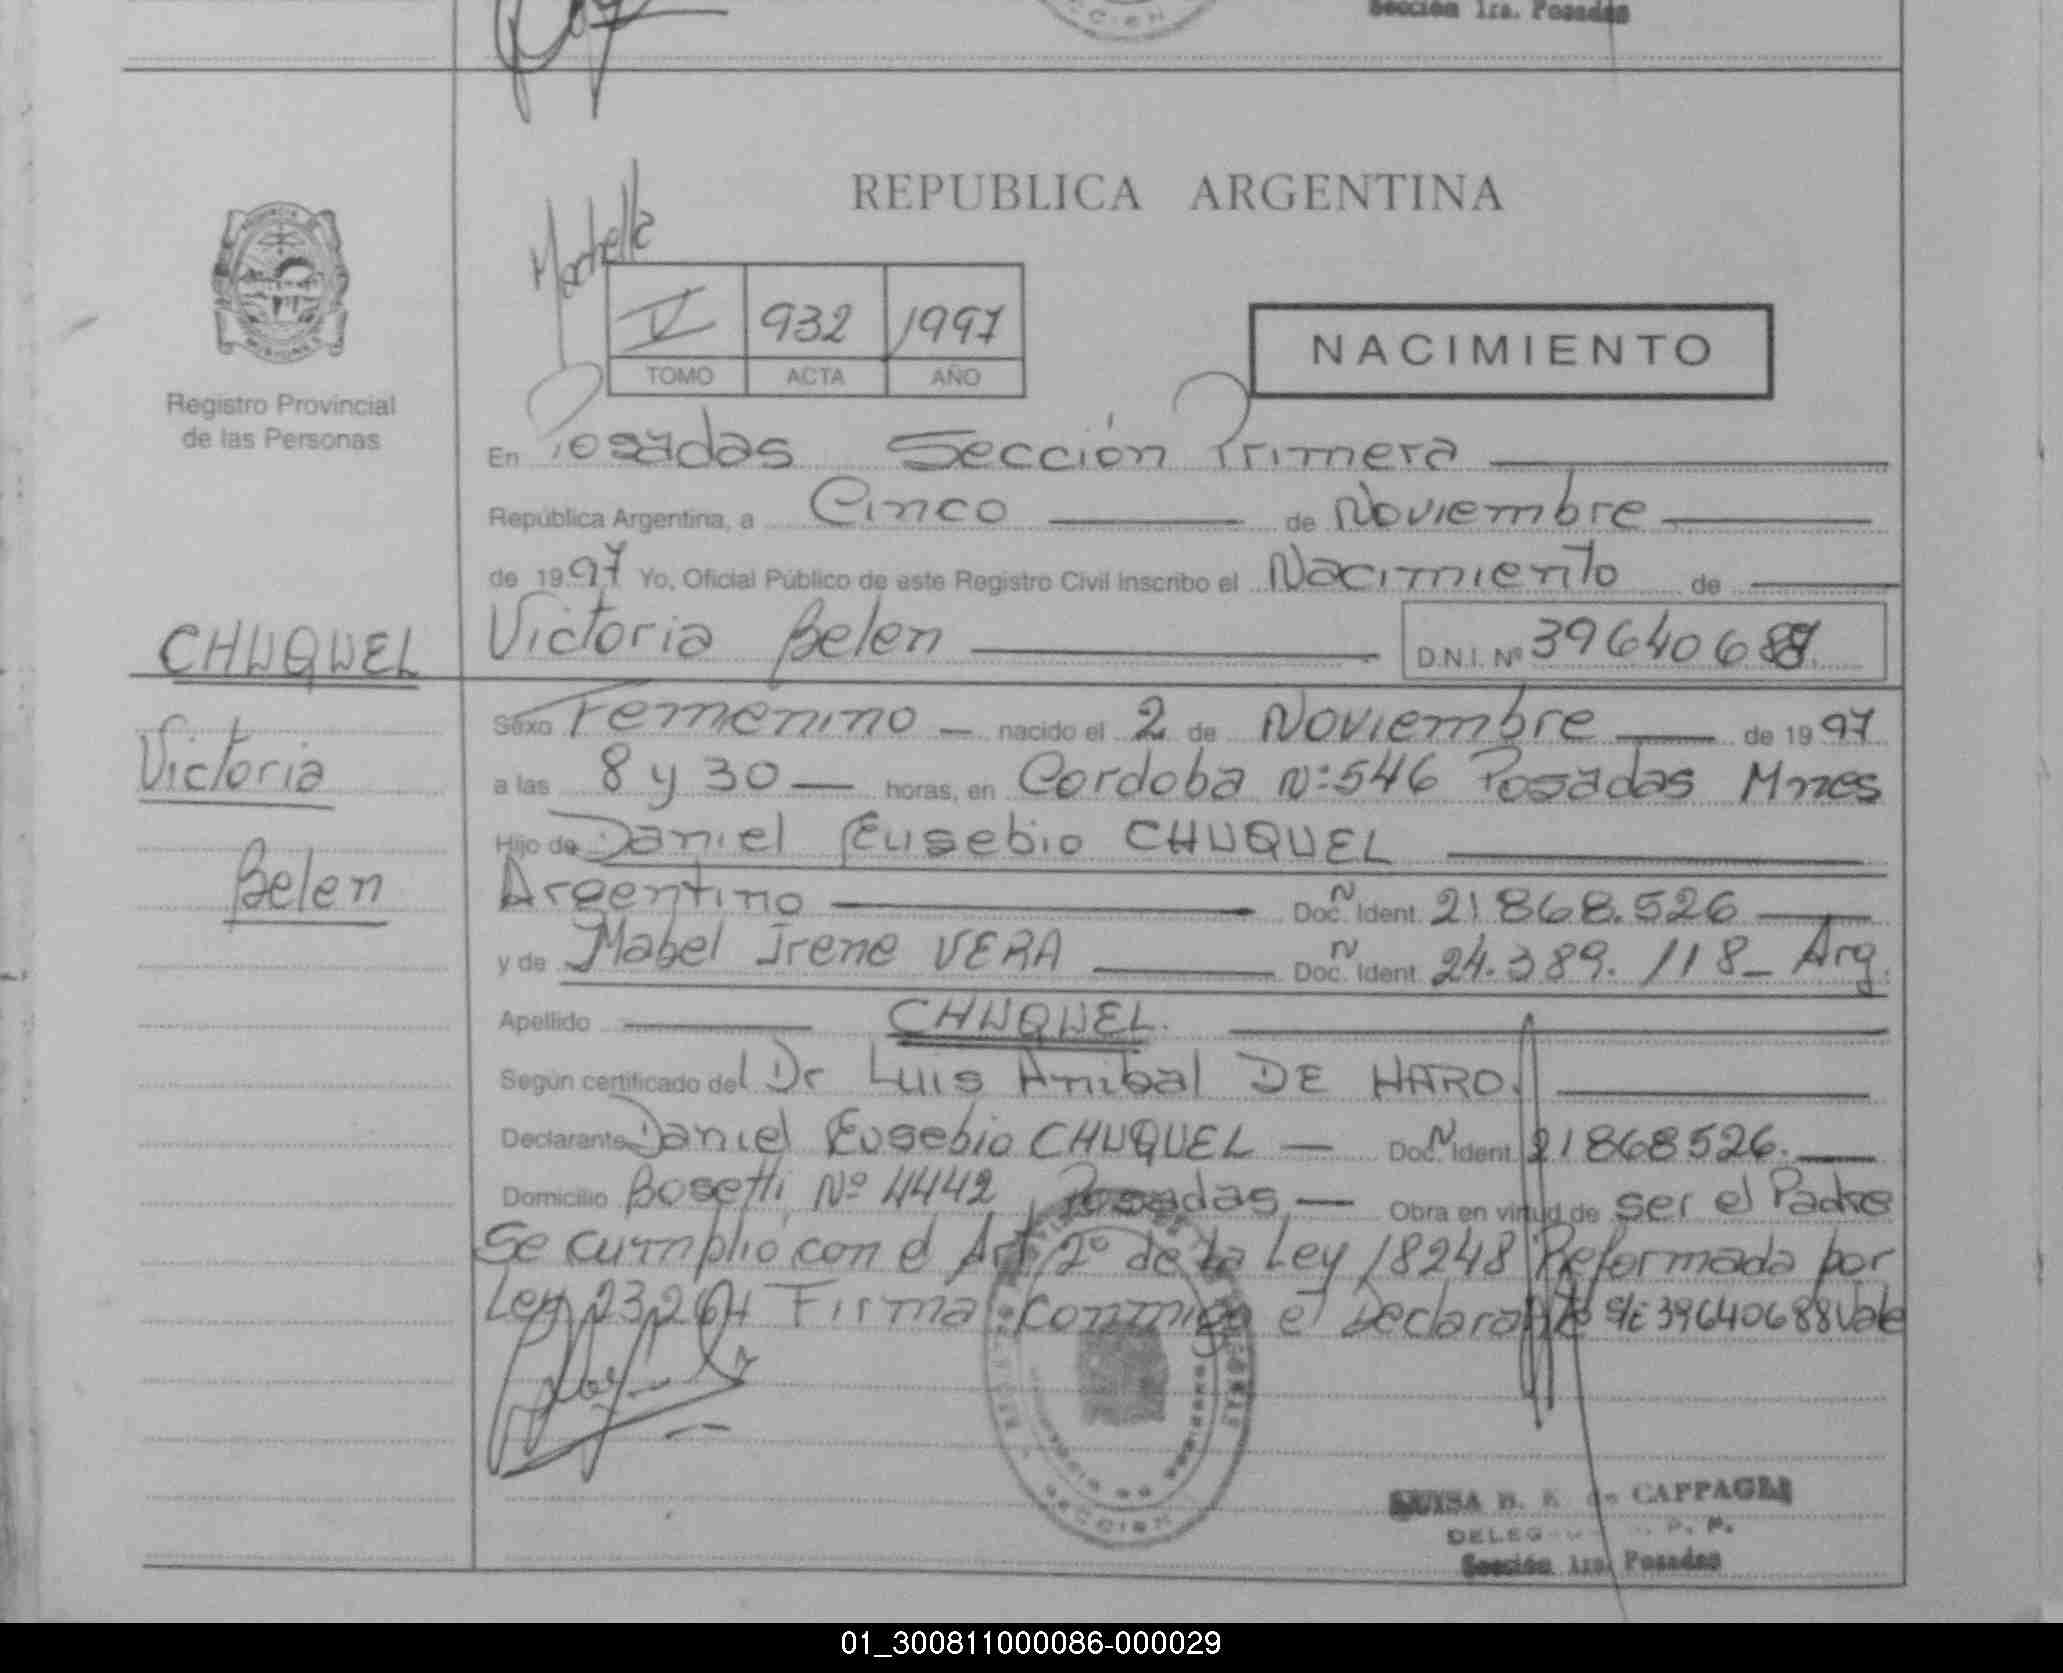 Sección 1ra. Posadas
REPUBLICA ARGENTINA
V 932 1997
TOMO ACTA AÑO
NACIMIENTO
Registro Provincial
de las Personas
En Posadas Sección Primera
República Argentina, a Cinco de Noviembre
de 1997 Yo, Oficial Público de este Registro Civil Inscribo el Nacimiento de
CHUQUEL Victoria Belen D.N.I. Nº 39640688
Sexo Femenino nacido el 2 de Noviembre de 1997
Victoria
a las 8 y 30 horas, en Cordoba Nº 546 Posadas Mnes
Hijo de Daniel Eusebio CHUQUEL
Belen
Argentino Doc. N Ident. 21.868.526
y de Mabel Irene VERA Doc. N Ident. 24.389.118 - Arg.
Apellido CHUQUEL.
Según certificado del Dr Luis Anibal DE HARO.
Declarante Daniel Eusebio CHUQUEL Doc. N Ident. 21868526.
Domicilio Bosetti Nº 4442 Posadas Obra en virtud de ser el Padre
Se cumplio con el Art 2º de la Ley 18248 Reformada por
Ley 23264 Firma conmigo el Declarante S/E 39640688 Vale
SECCION
LUISA B. de CAPPAGLI
Sección 1ra. Posadas
01_300811000086-000029